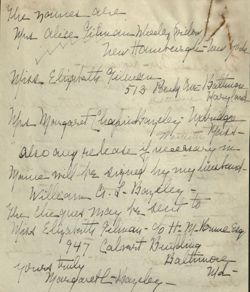 The names are
Mrs Alice Gilman Wheeler
New Hamburgh - New York
Miss Elizabeth Gilman
513 Park Ave Baltimore
Maryland
Mrs Margaret Bayley Uxbridge
also any release if necessary in
will be signed by my husband
William G. S. Bayley -
The cheques may be sent to
Miss Elizabeth Gilman - c/o H. M. Esq
947 Calvert Building
Baltimore
Md -
Yours truly
Margaret Bayley -